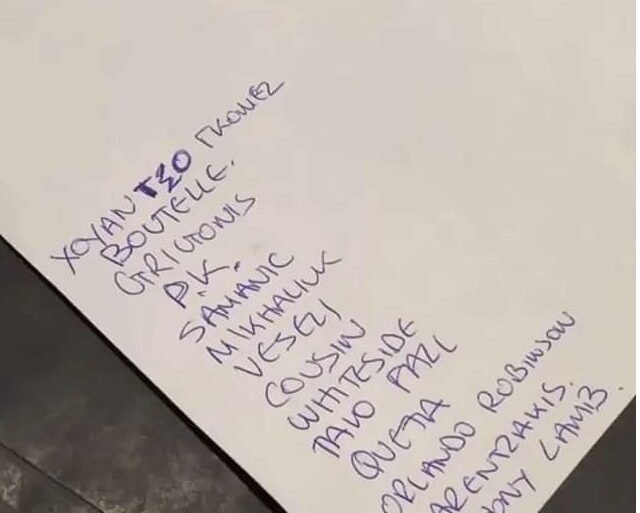 ΧΟΥΑΝ ΤΣΟ ΓΚΟΜΕΖ
BOUTEILLE.
GRIGONIS
P.K.
SAMANIC
MIKHAILIUK
VESELI
COUSIN
WHITESIDE
QUETA
ORLANDO ROBINSON
ARENTZAKIS.
ONY LAMB.